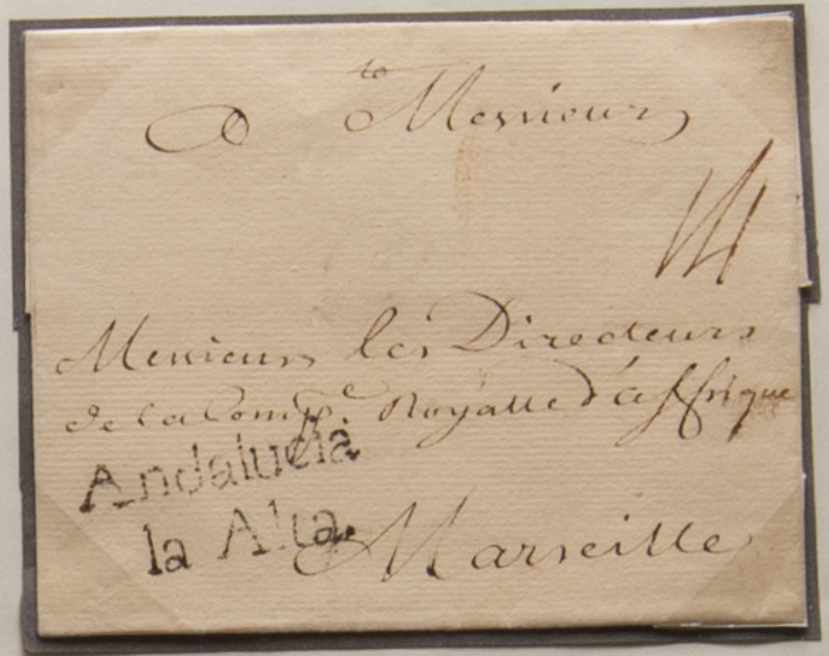 A Messieurs
Messieurs les Directeurs
de la Compe Royalle d'affrique
Andalucia
la Alta
Marseille